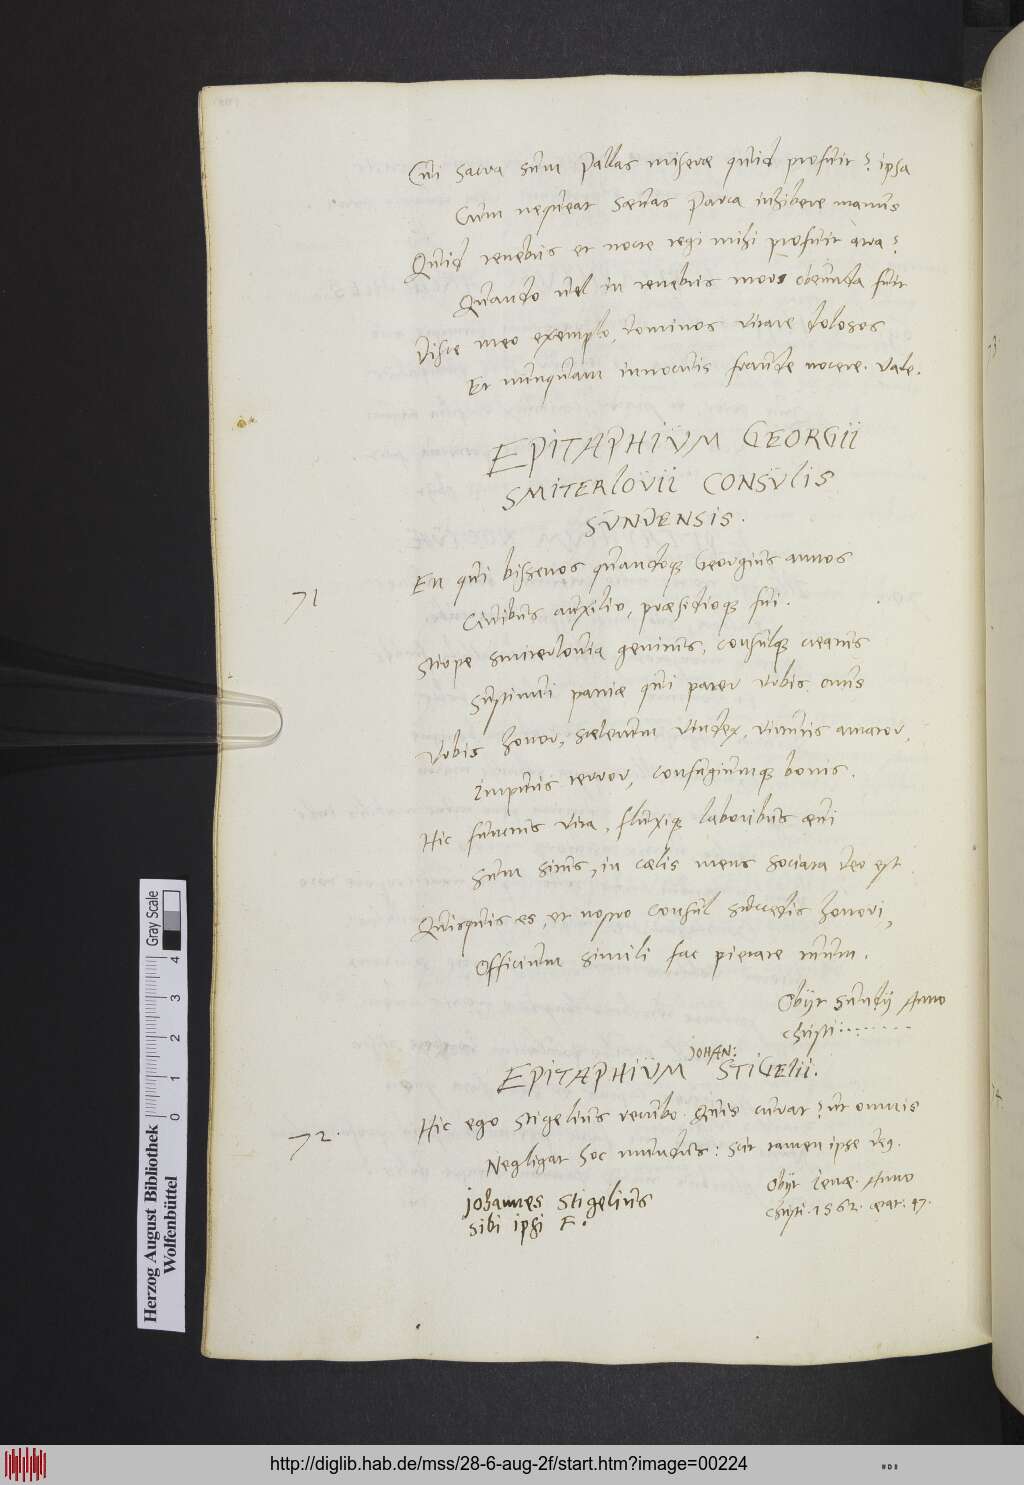 Cui sacra sum Pallas miseræ quid profuit? ipsa
Cum nequeat sæuas Parca inhibere manus
Quid tenebris et nocte tegi mihi profuit atra?
Quando vel in tenebris mors obeunda fuit
Disce meo exemplo, dominos vitare dolosos
Et nunquam innocuis fraude nocere. Vale.
EPITAPHIVM GEORGII
SMITERLOVII CONSVLIS
SVNDENSIS.
71
En qui bissenos quandoq; Georgius annos
Ciuibus auxilio, præsidioq; fui.
Stirpe Smiterlouia genitus, consulq; creatus
Sustinui patriæ qui pater vrbis onus
Vrbis honor, scelerum vindex, virtutis amator,
Impiis terror, confugiumq; bonis.
Hic functus vita, fluxiq; laboribus æui
Sum situs, in cœlis mens sociata deo est
Quisquis es, et nostro consul succedis honori,
Officium simili fac pietate tuum.
Obijt Sundij Anno
Christi:.......
EPITAPHIVM JOHAN: STIGELII.
72.
Hic ego Stigelius recumbo. Quis curat? ut omnis
Negligat hoc mundus: scit tamen ipse deus.
Obijt Ienæ. Anno
Christi. 1562. ætat: 47.
Johannes Stigelius
sibi ipsi F.
Gray Scale
0 1 2 3 4
Herzog August Bibliothek
Wolfenbüttel
http://diglib.hab.de/mss/28-6-aug-2f/start.htm?image=00224